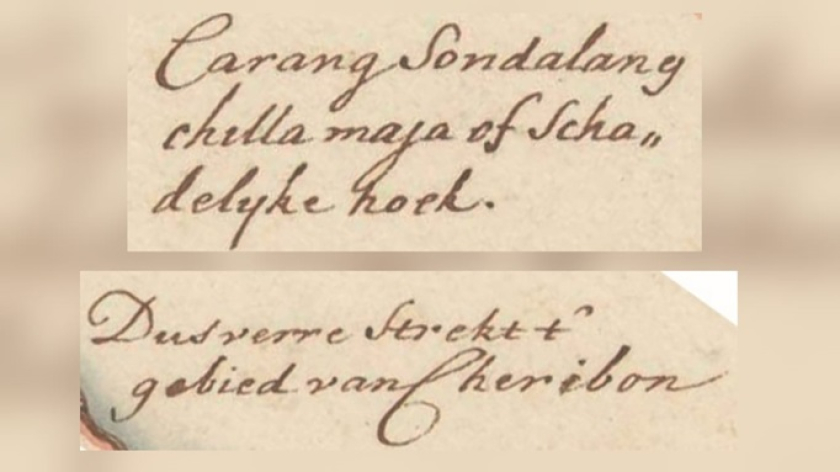 Carang Sondalang
chilla maja of Scha„
delyke hoek.
Dusverre Strekt t'
gebied van Cheribon